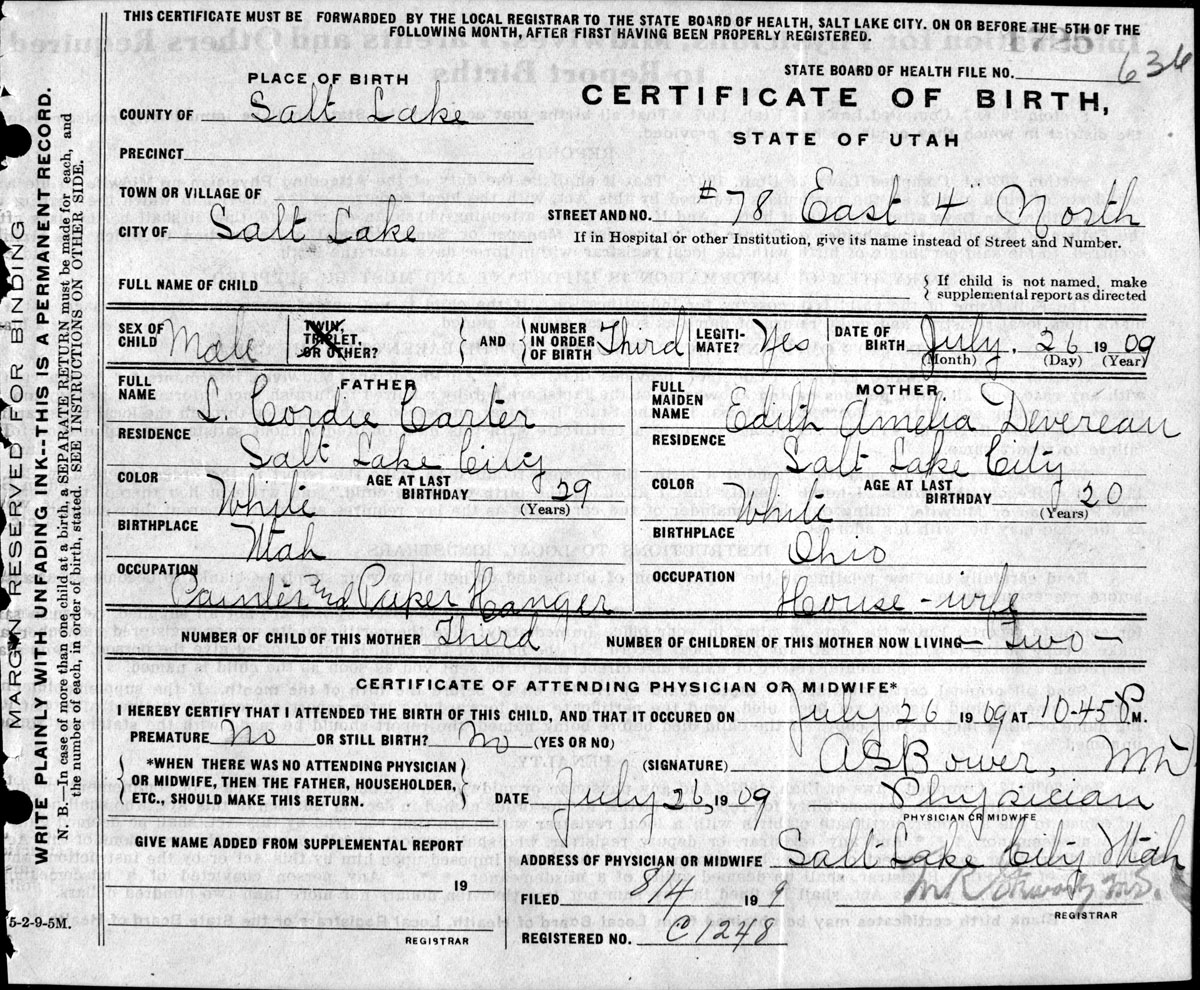 THIS CERTIFICATE MUST BE FORWARDED BY THE LOCAL REGISTRAR TO THE STATE BOARD OF HEALTH, SALT LAKE CITY. ON OR BEFORE THE 5TH OF THE
FOLLOWING MONTH, AFTER FIRST HAVING BEEN PROPERLY REGISTERED.
STATE BOARD OF HEALTH FILE NO. 636
PLACE OF BIRTH
CERTIFICATE OF BIRTH,
STATE OF UTAH
COUNTY OF Salt Lake
PRECINCT
TOWN OR VILLAGE OF
CITY OF Salt Lake
STREET AND NO. #78 East 4th North
If in Hospital or other Institution, give its name instead of Street and Number.
FULL NAME OF CHILD
If child is not named, make
supplemental report as directed
SEX OF CHILD Male
TWIN, TRIPLET, OR OTHER?
AND
NUMBER IN ORDER OF BIRTH Third
LEGITI-MATE? Yes
DATE OF BIRTH July 26 1909
(Month) (Day) (Year)
FATHER
FULL NAME L Cordie Carter
RESIDENCE Salt Lake City
COLOR White
AGE AT LAST BIRTHDAY 29
(Years)
BIRTHPLACE Utah
OCCUPATION Painter and Paper Hanger
MOTHER
FULL MAIDEN NAME Edith Amelia Devereau
RESIDENCE Salt Lake City
COLOR White
AGE AT LAST BIRTHDAY 20
(Years)
BIRTHPLACE Ohio
OCCUPATION House-wife
NUMBER OF CHILD OF THIS MOTHER Third
NUMBER OF CHILDREN OF THIS MOTHER NOW LIVING Two
CERTIFICATE OF ATTENDING PHYSICIAN OR MIDWIFE*
I HEREBY CERTIFY THAT I ATTENDED THE BIRTH OF THIS CHILD, AND THAT IT OCCURED ON July 26 1909 AT 10-45 P M.
PREMATURE No OR STILL BIRTH? No (YES OR NO)
*WHEN THERE WAS NO ATTENDING PHYSICIAN
OR MIDWIFE, THEN THE FATHER, HOUSEHOLDER,
ETC., SHOULD MAKE THIS RETURN.
(SIGNATURE) A S Bower, MD
DATE July 26, 1909 Physician
PHYSICIAN OR MIDWIFE
GIVE NAME ADDED FROM SUPPLEMENTAL REPORT
19
REGISTRAR
ADDRESS OF PHYSICIAN OR MIDWIFE Salt Lake City Utah
FILED 8/4 19 9
REGISTRAR
REGISTERED NO. C1248
5-2-9-5M.
MARGIN RESERED FOR BINDING
WRITE PLAINLY WITH UNFADING INK--THIS IS A PERMANENT RECORD.
N. B.—In case of more than one child at a birth, a SEPARATE RETURN must be made for each, and
the number of each, in order of birth, stated. SEE INSTRUCTIONS ON OTHER SIDE.